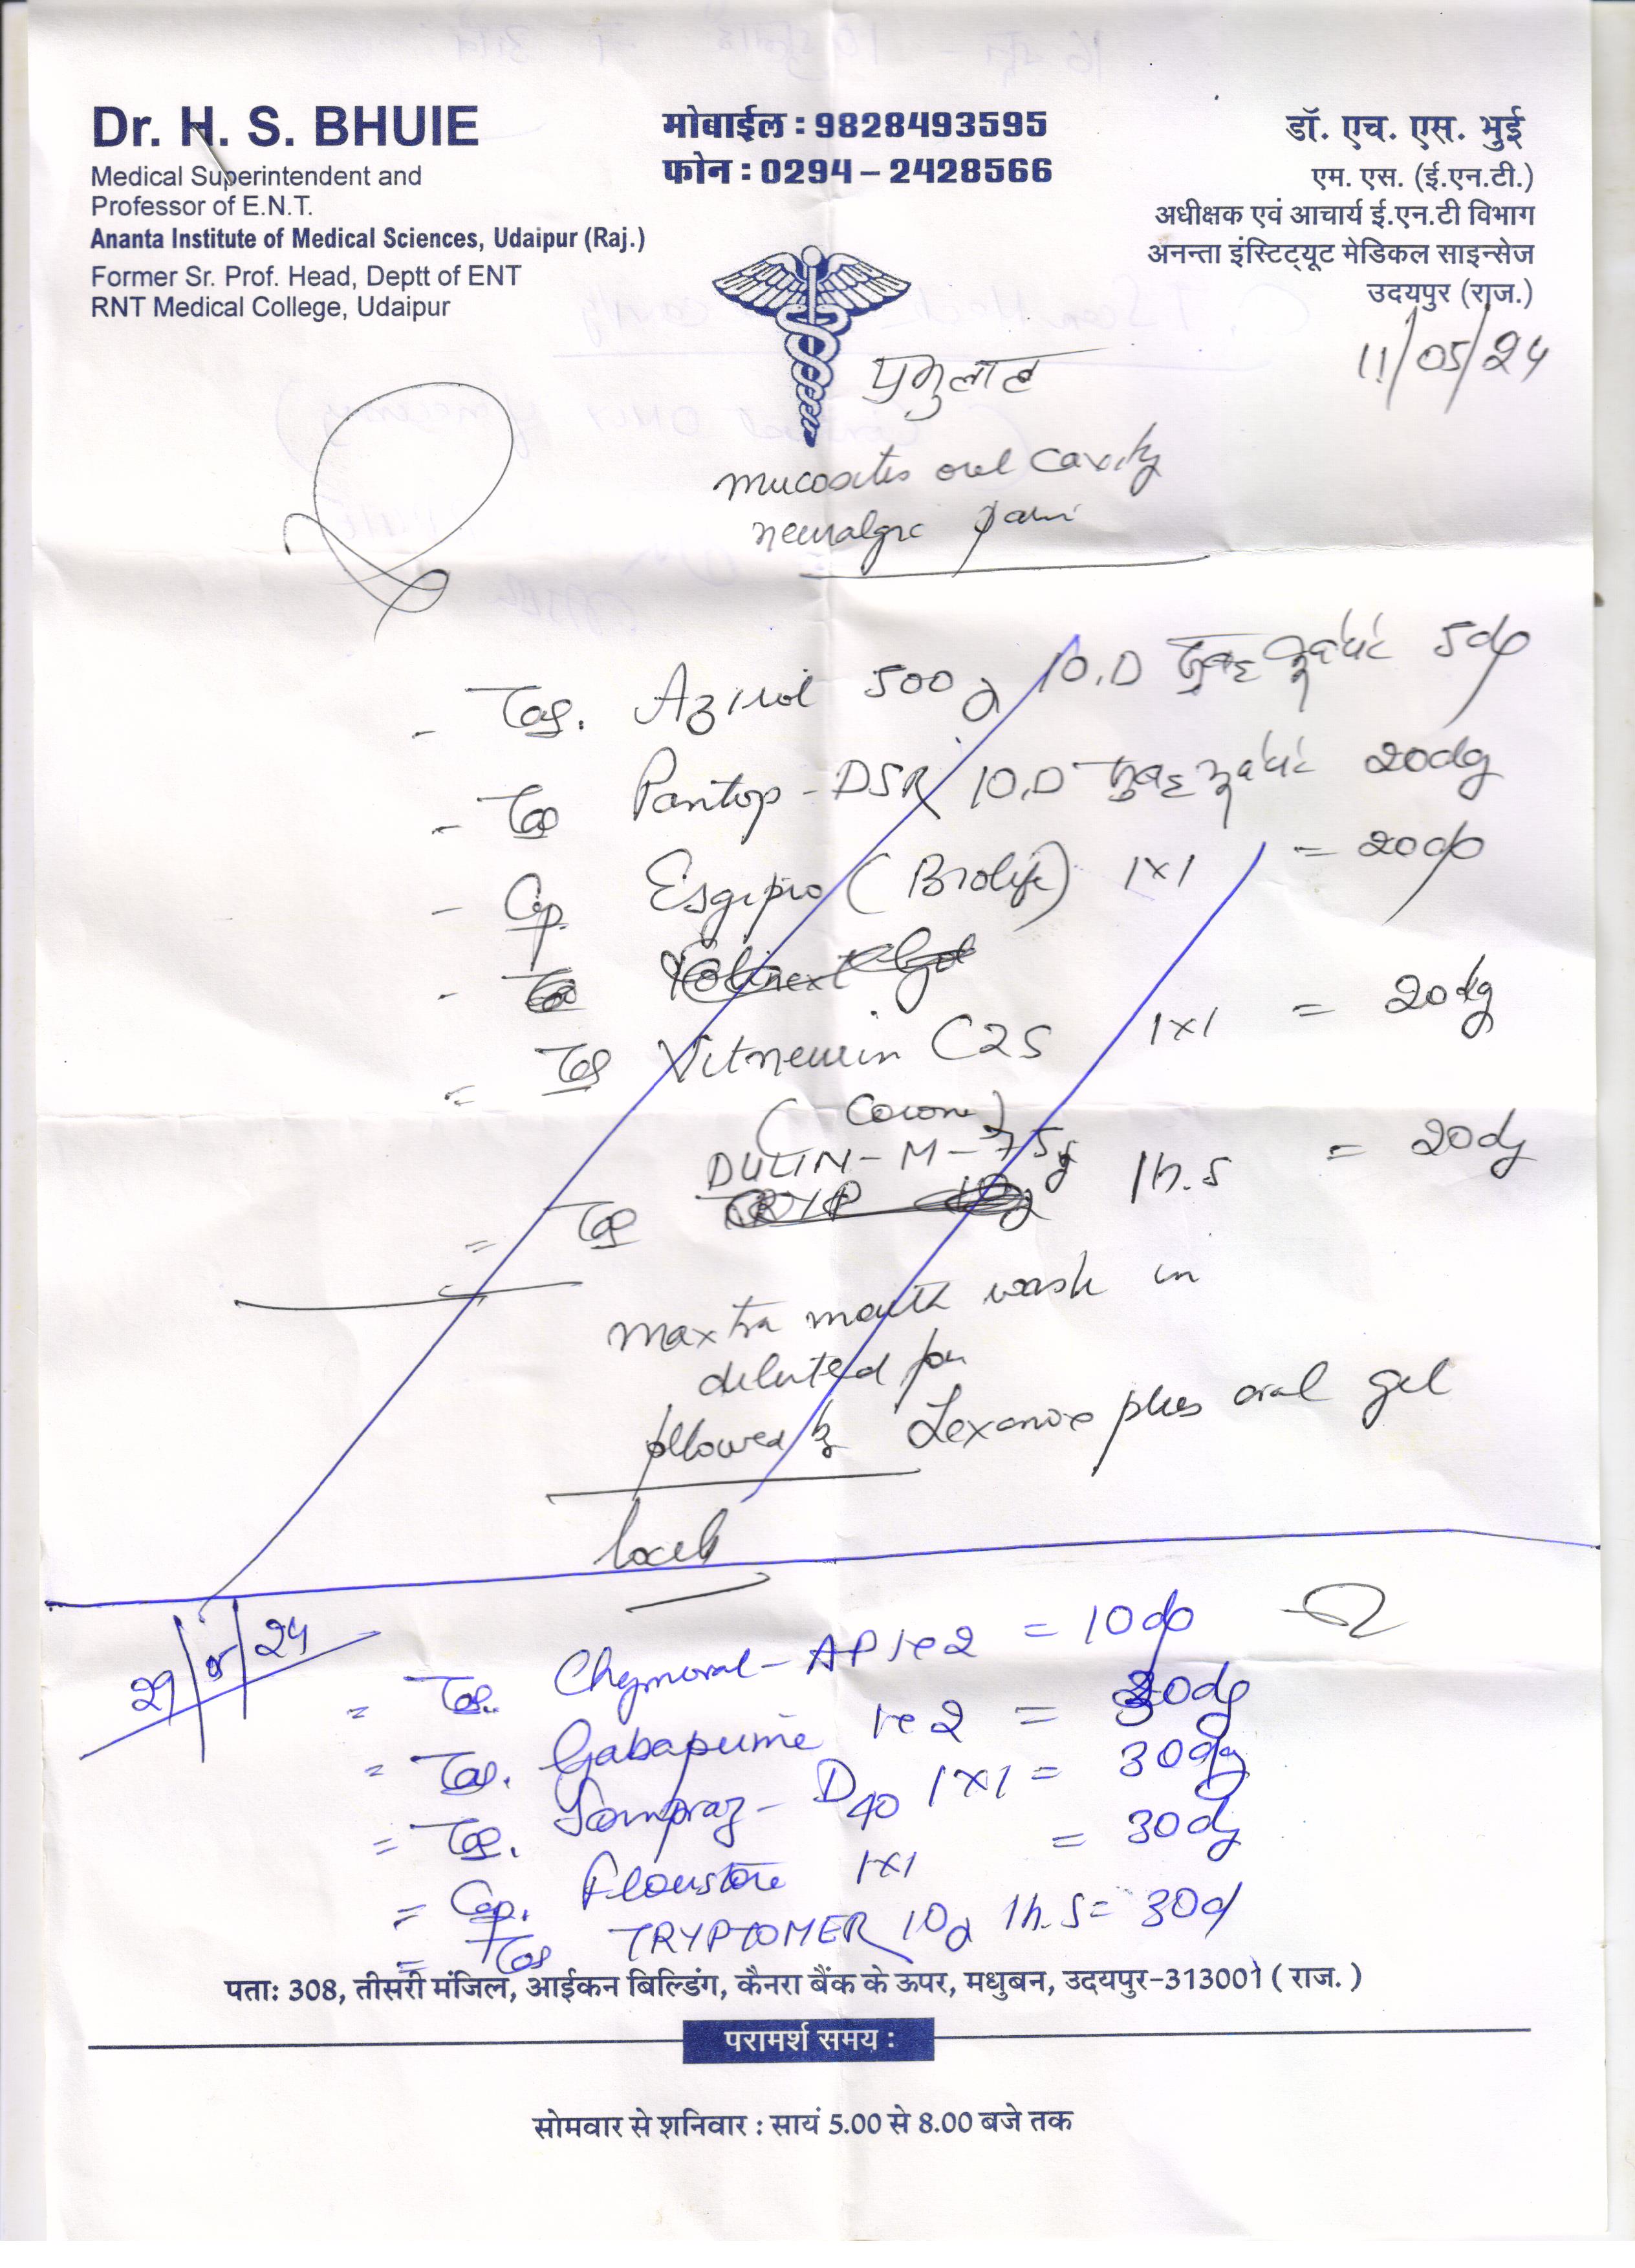 Dr. H. S. BHUIE
Medical Superintendent and
Professor of E.N.T.
Ananta Institute of Medical Sciences, Udaipur (Raj.)
Former Sr. Prof. Head, Deptt of ENT
RNT Medical College, Udaipur
मोबाईल : 9828493595
फोन : 0294 – 2428566
डॉ. एच. एस. भुई
एम. एस. (ई.एन.टी.)
अधीक्षक एवं आचार्य ई.एन.टी विभाग
अनन्ता इंस्टिट्यूट मेडिकल साइन्सेज
उदयपुर (राज.)
11/05/24
mucositis oral cavity
neuralgic pain
- Tab. 500 10.D सुबह 5d
- Tab Pantop - DSR 10.D सुबह 20dy
- Cap. Esgipro (Brolife) 1x1 = 20d
= Tab Vitneurin C25 1x1 = 20dy
(Corona)
DULIN - M - 75
= Tab 1h.s = 20dy
maxtra mouth wash in
diluted for
followed by Lexanox plus oral gel
locally
29/5/24
= Tab. Chymoral - AP 1e2 = 10d
= Tab. 1e2 = 30dy
= Tab. Sompraz - D40 1x1 = 30dy
= Cap. 1x1 = 30dy
= Tab TRYPTOMER 10 1h.s = 30d
पताः 308, तीसरी मंजिल, आईकन बिल्डिंग, कैनरा बैंक के ऊपर, मधुबन, उदयपुर-313001 ( राज. )
परामर्श समय :
सोमवार से शनिवार : सायं 5.00 से 8.00 बजे तक